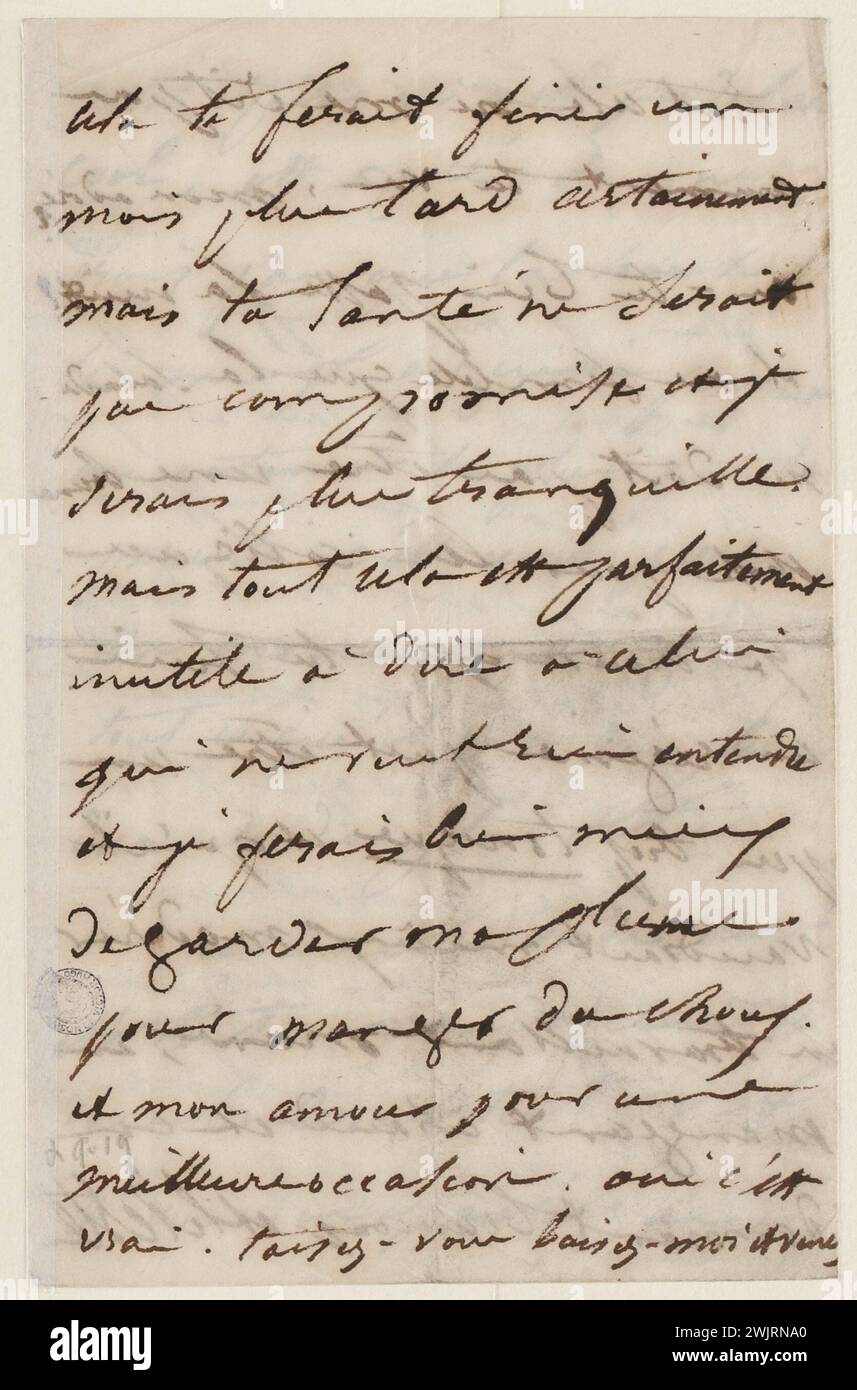 cela te ferait finir un
mois plus tard certainement
mais ta santé ne serait
pas compromise et je
serais plus tranquille.
mais tout cela est parfaitement
inutile à dire à celui
qui ne veut rien entendre
et je ferais bien mieux
de garder ma plume
pour manger du choux.
et mon amour pour une
meilleure occasion. oui c'est
vrai. taisez-vous baisez-moi et venez
alamy
Image ID: 2WJRNA0
www.alamy.com